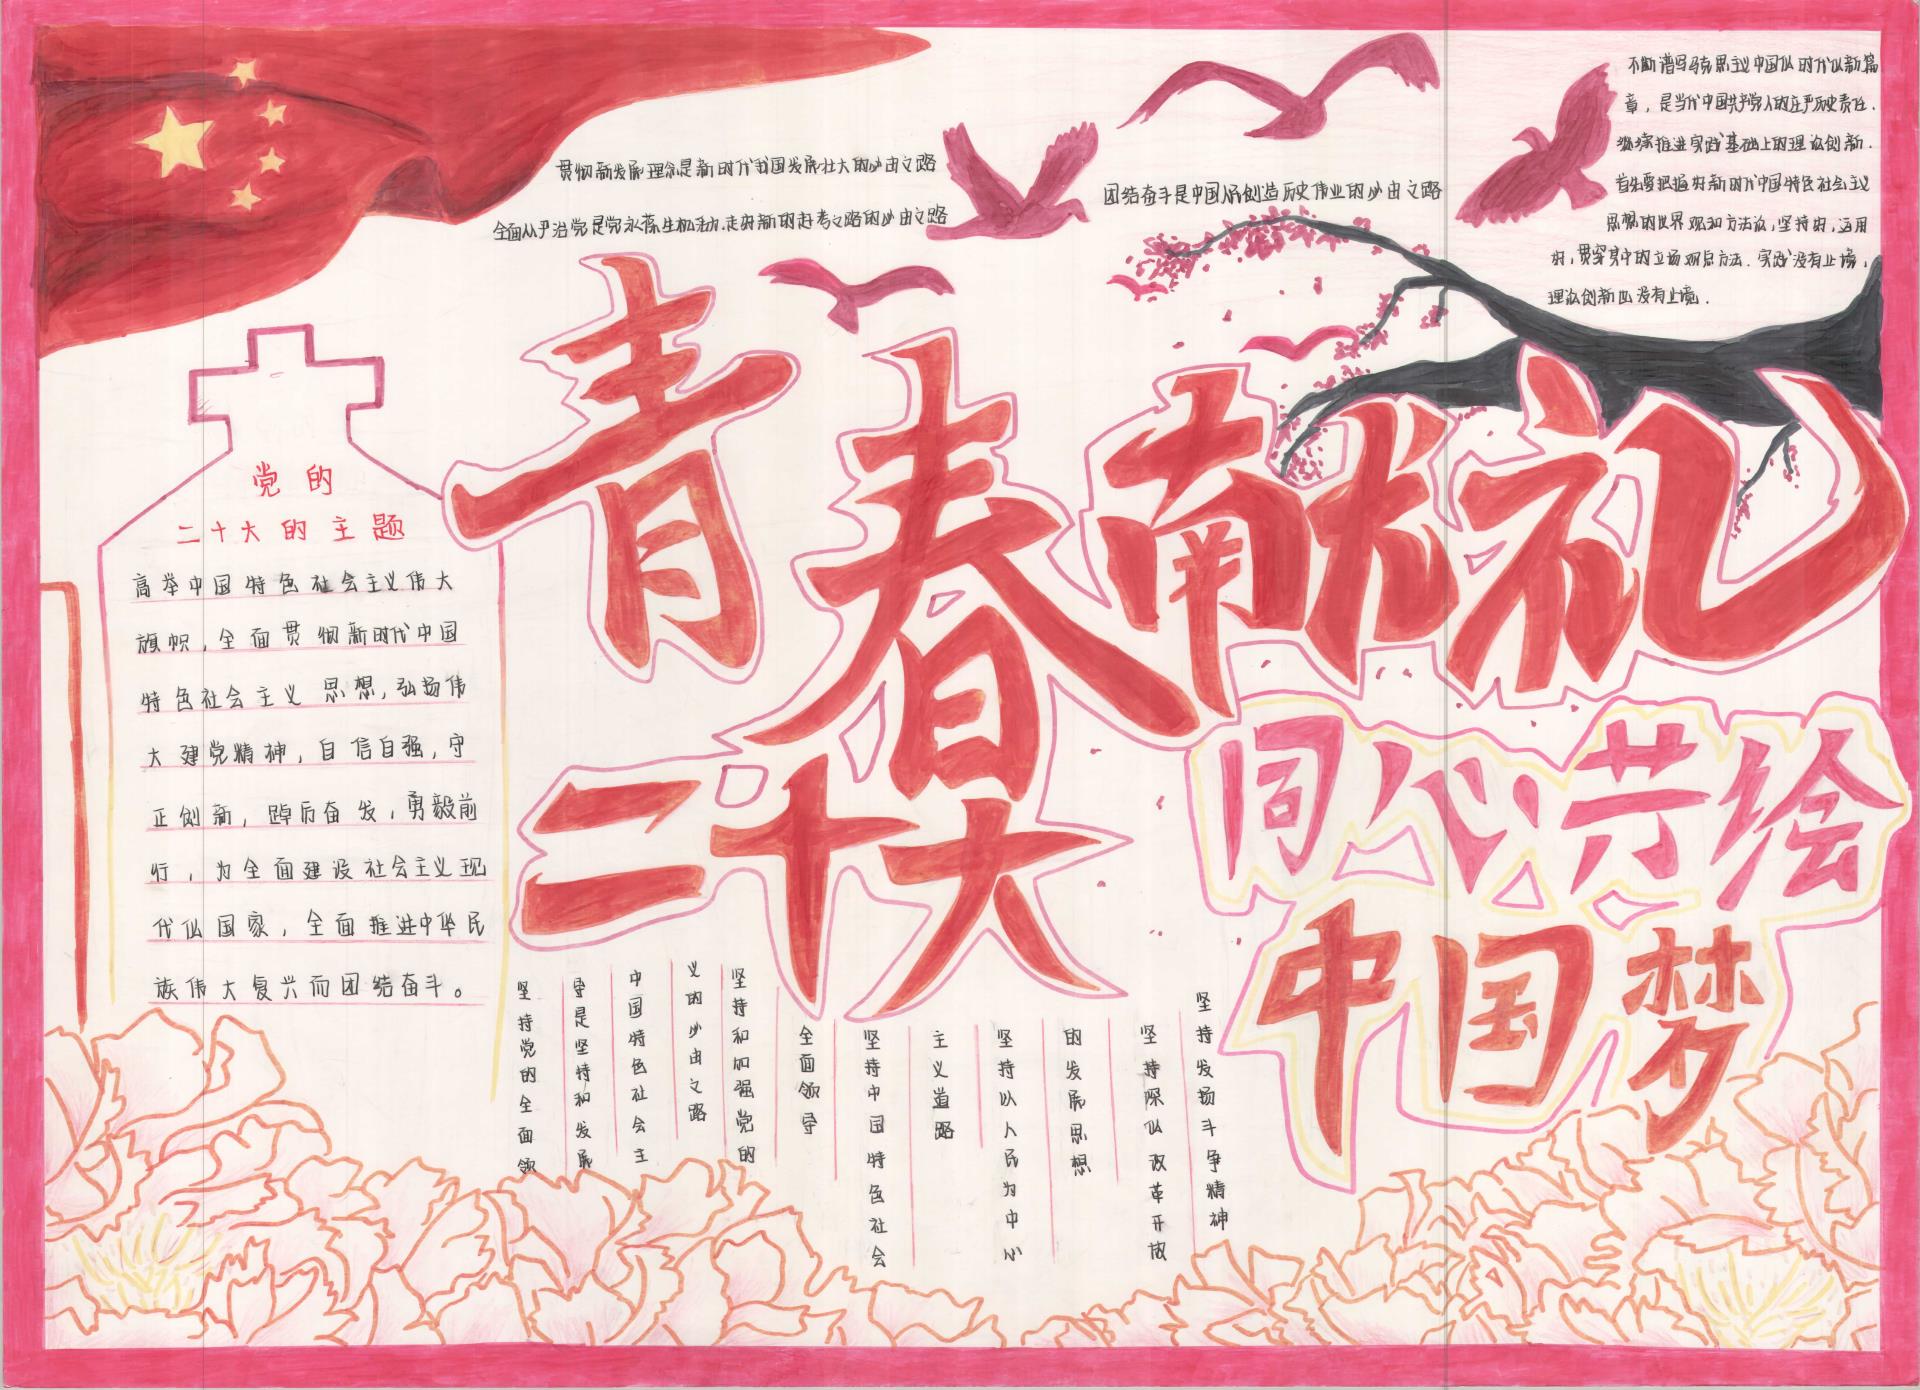 不断谱写马克思主义中国化时代化新篇
章，是当代中国共产党人的庄严历史责任.
继续推进实践基础上的理论创新.
首先要把握好新时代中国特色社会主义
思想的世界观和方法论,坚持好,运用
好,贯穿其中的立场观点方法.实践没有止境,
理论创新也没有止境.
贯彻新发展理念是新时代我国发展壮大的必由之路
全面从严治党是党永葆生机活力.走好新的赶考之路的必由之路
团结奋斗是中国人民创造历史伟业的必由之路
青春献礼
二十大
同心共绘
中国梦
党的
二十大的主题
高举中国特色社会主义伟大
旗帜,全面贯彻新时代中国
特色社会主义思想,弘扬伟
大建党精神,自信自强,守
正创新,踔厉奋发,勇毅前
行,为全面建设社会主义现
代化国家,全面推进中华民
族伟大复兴而团结奋斗。
坚持党的全面领
导是坚持和发展
中国特色社会主
义的必由之路
坚持和加强党的
全面领导
坚持中国特色社会
主义道路
坚持以人民为中心
的发展思想
坚持深化改革开放
坚持发扬斗争精神